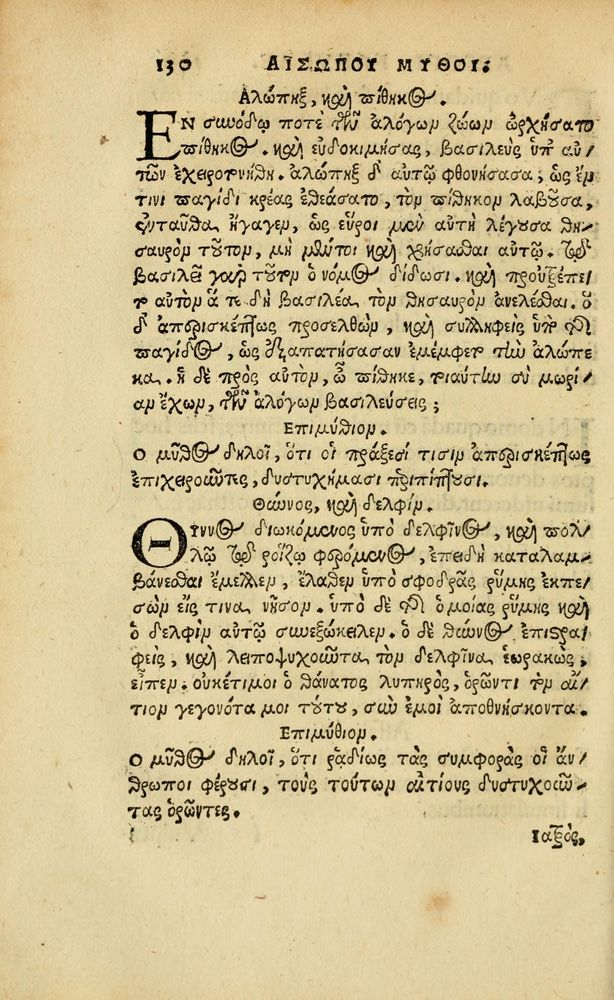 130 ΑΙΣΩΠΟΥ ΜΥΘΟΙ.
Αλώπηξ, καὶ πίθηκος.
ΕΝ συνόδῳ ποτὲ τῶν ἀλόγων ζώων ὠρχήσατο
πίθηκος. καὶ εὐδοκιμήσας, βασιλεὺς ὑπ' αὐ-
τῶν ἐχειροτονήθη. ἀλώπηξ δ' αὐτῷ φθονήσασα, ὡς ἔν
τινι παγίδι κρέας ἐθεάσατο, τὸν πίθηκον λαβοῦσα,
ἐνταῦθα ἤγαγεν, ὡς εὕροι μὲν αὐτὴ λέγουσα θη-
σαυρὸν τοῦτον, μὴ μέντοι καὶ χρήσασθαι αὐτῷ. τῷ
βασιλεῖ γὰρ τοῦτον ὁ νόμος δίδωσι. καὶ προὔτρεπεν
αὐτὸν ἅτε δὴ βασιλέα, τὸν θησαυρὸν ἀνελέσθαι. ὁ
δ' ἀπερισκέπτως προσελθὼν, καὶ συλληφθεὶς ὑπὸ τῆς
παγίδος, ὡς ἐξαπατήσασαν ἐμέμφετο τὴν ἀλώπε
κα. ἡ δὲ πρὸς αὐτὸν, ὦ πίθηκε, τοιαύτην σὺ μωρί-
αν ἔχων, τῶν ἀλόγων βασιλεύσεις;
Επιμύθιον.
Ο μῦθος δηλοῖ, ὅτι οἱ πράξεσί τισιν ἀπερισκέπτως
ἐπιχειροῦντες, δυστυχήμασι περιπίπτουσι.
Θύννος, καὶ δελφίν.
ΘΥννος διωκόμενος ὑπὸ δελφῖνος, καὶ πολ-
λῷ τῷ ῥοίζῳ φερόμενος, ἐπειδὴ καταλαμ-
βάνεσθαι ἔμελλεν, ἔλαθεν ὑπὸ σφοδρᾶς ῥύμης ἐκπε-
σὼν εἴς τινα νῆσον. ὑπὸ δὲ τῆς ὁμοίας ῥύμης καὶ
ὁ δελφὶν αὐτῷ συνεξώκειλεν. ὁ δὲ θύννος ἐπιστρα-
φεὶς, καὶ λειποψυχοῦντα τὸν δελφῖνα ἑωρακὼς,
εἶπεν. οὐκέτι μοι ὁ θάνατος λυπηρὸς, ὁρῶντι τὸν αἴ-
τιον γεγονότα μοι τούτου, σὺν ἐμοὶ ἀποθνήσκοντα.
Επιμύθιον.
Ο μῦθος δηλοῖ, ὅτι ῥᾳδίως τὰς συμφορὰς οἱ ἄν-
θρωποι φέρουσι, τοὺς τούτων αἰτίους δυστυχοῦν-
τας ὁρῶντες.
Ιατρὸς,